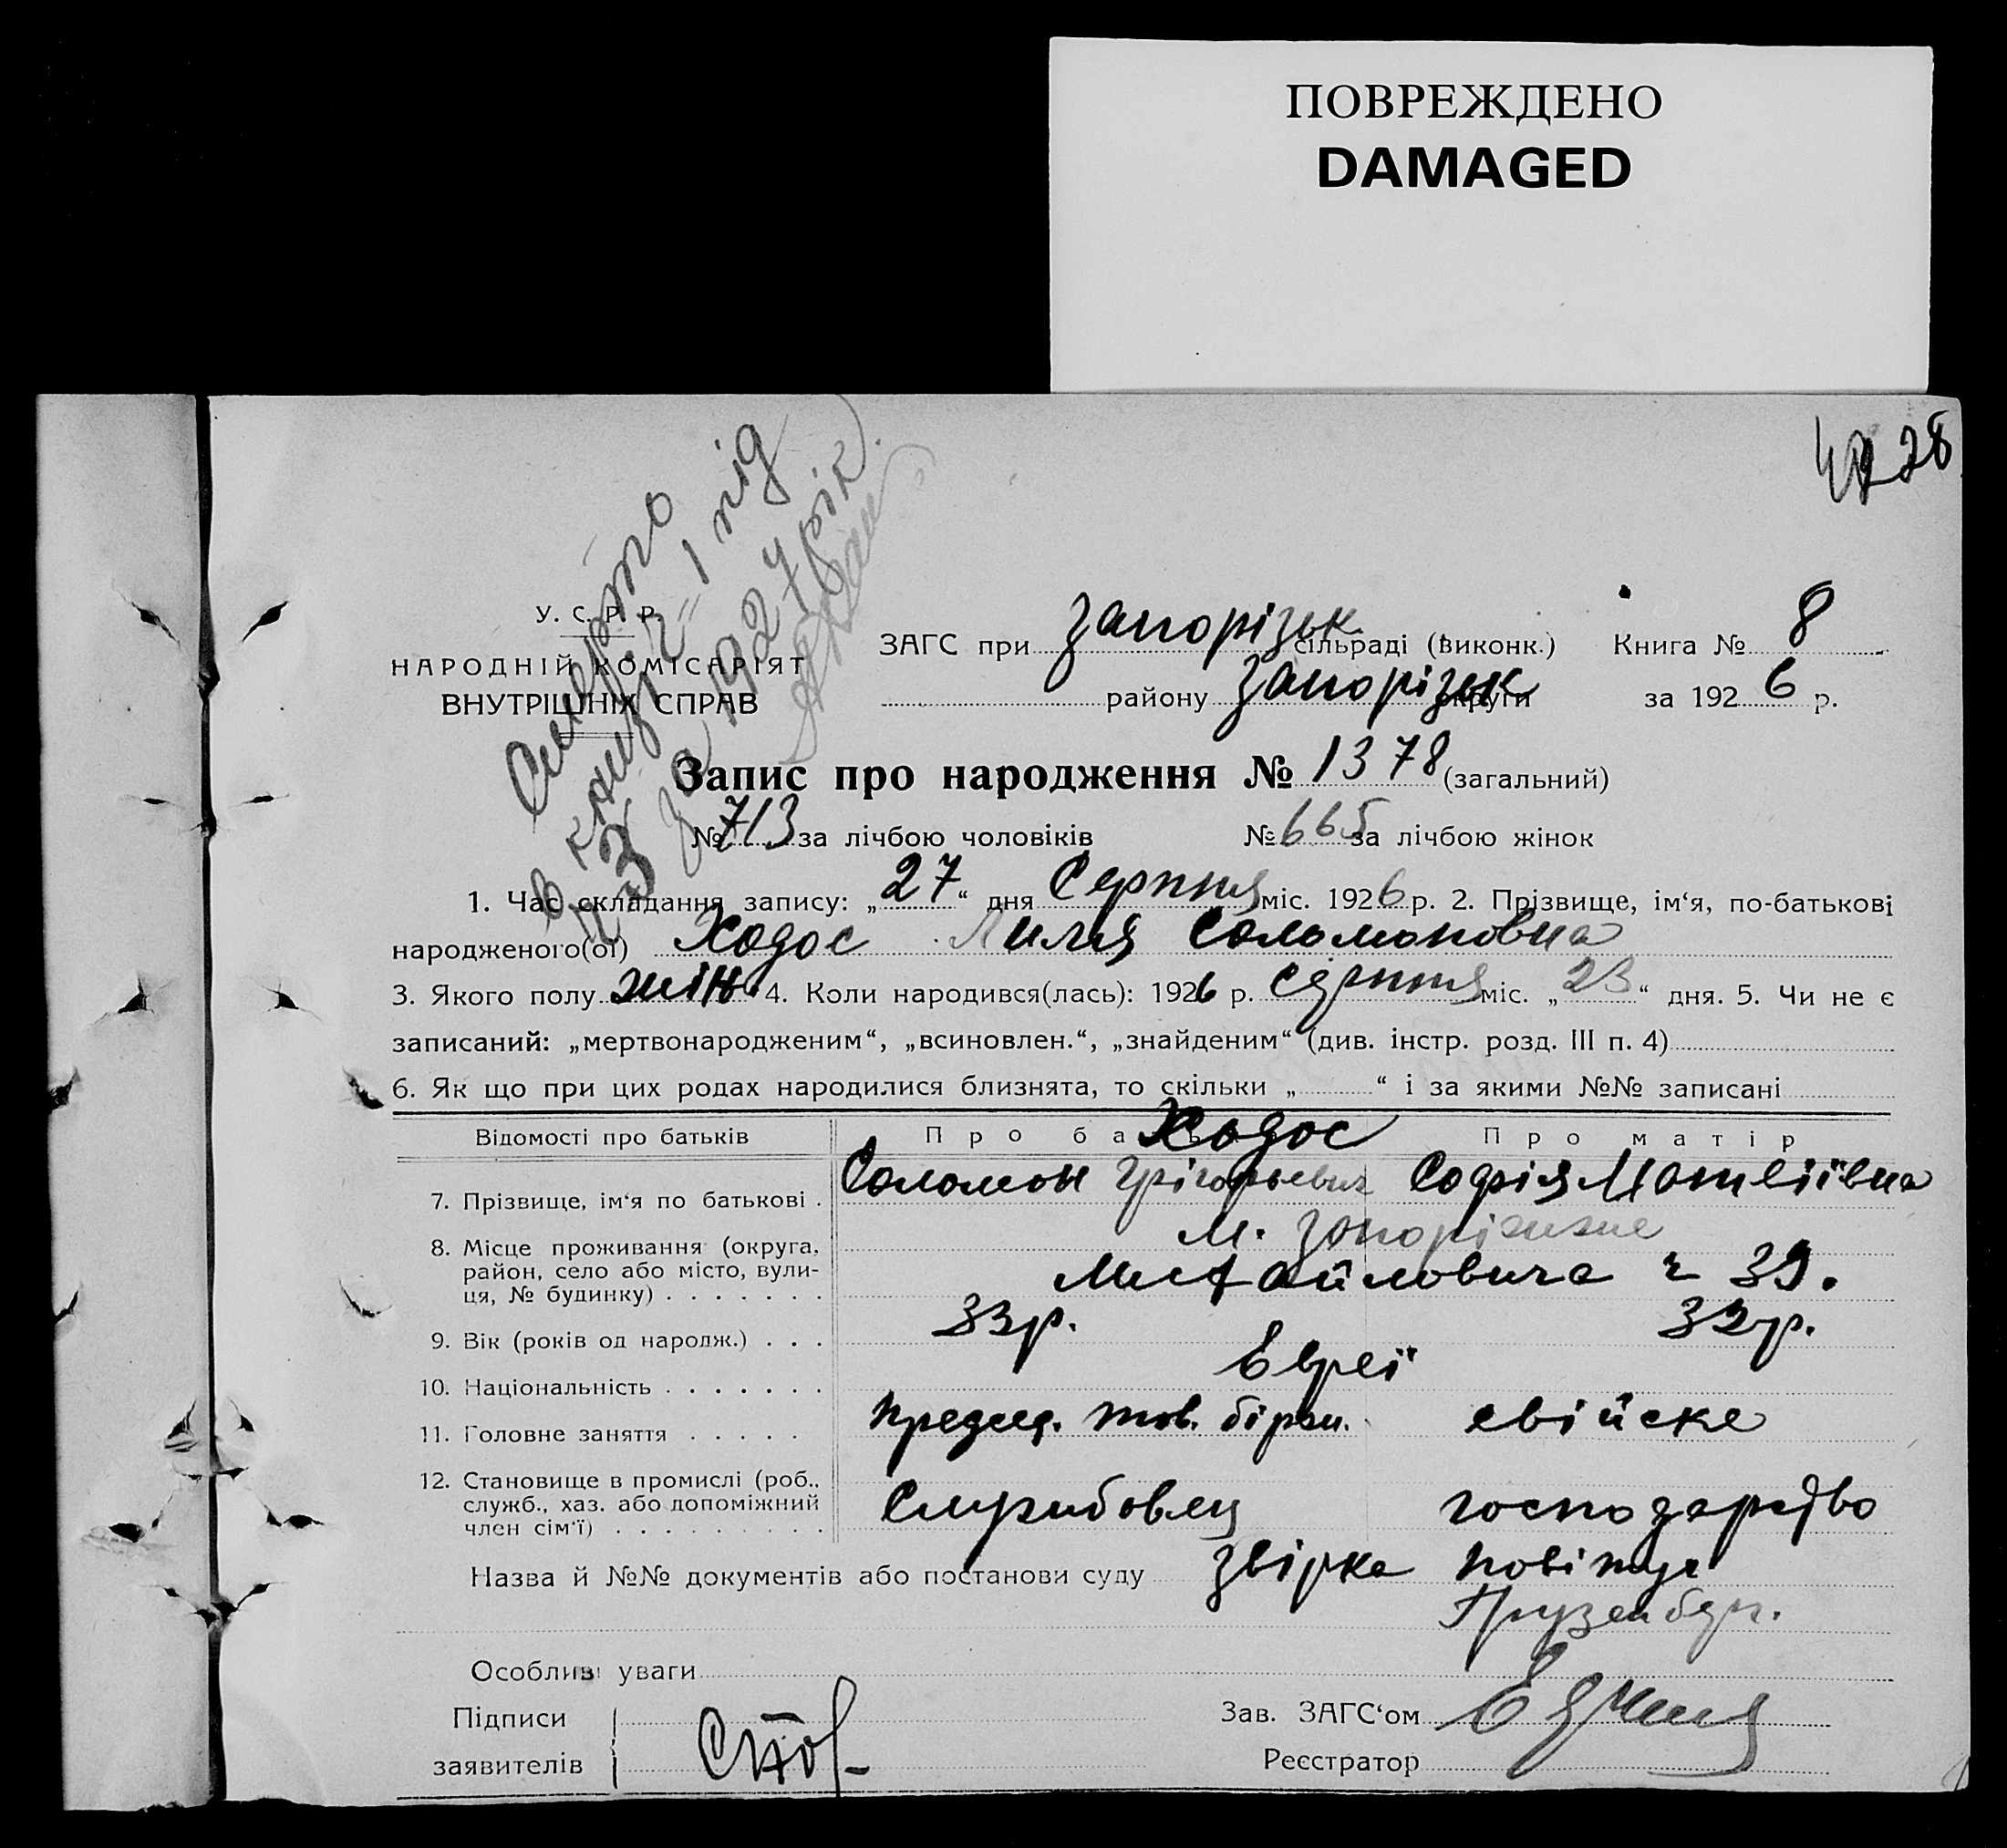 ПОВРЕЖДЕНО
DAMAGED
28
Смерть
в книзі ч 1 під
№ 3 за 1927 рік.
У. С. Р. Р.
НАРОДНІЙ КОМІСАРІЯТ
ВНУТРІШНІХ СПРАВ
ЗАГС при Запорізьк сільраді (виконк.) Книга № 8
району Запорізьк округи за 192 6 р.
Запис про народження № 1378 (загальний)
№ 713 за лічбою чоловіків № 665 за лічбою жінок
1. Час складання запису: „27“ дня Серпня міс. 1926 р. 2. Прізвище, ім‘я, по-батькові
народженого(ої) Ходос Лиля Соломоновна
3. Якого полу жін. 4. Коли народився(лась): 1926 р. серпня міс. „23“ дня. 5. Чи не є
записаний: „мертвонародженим“, „всиновлен.“, „знайденим“ (див. інстр. розд. III п. 4)
6. Як що при цих родах народилися близнята, то скільки „ “ і за якими №№ записані
Відомості про батьків Про батька Про матір
Ходос
7. Прізвище, ім‘я по батькові . Соломон Грігорьевич Софія
8. Місце проживання (округа, район, село або місто, вулиця, № будинку) . . . . . . .
м. Запоріжже
ч 39.
9. Вік (років од народж.) . . . 33р. 32р.
10. Національність . . . . . . . Євреї
11. Головне заняття . . . . . тов. хвійске
12. Становище в промислі (роб., служб., хаз. або допоміжний член сім‘ї) . . . . . . . . . Службовец господарство
Назва й №№ документів або постанови суду звірка
Особливі уваги
Підписи
заявителів
Зав. ЗАГС‘ом
Реєстратор